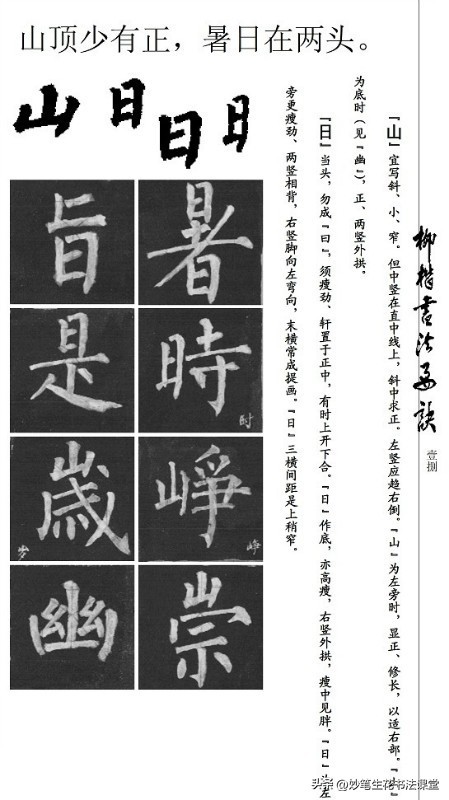 山顶少有正，暑日在两头。
山 日 日 日
旨 暑
是 時 时
歲 岁 崢 峥
幽 崇
柳楷书法要诀
壹捌
『山』宜写斜、小、窄。但中竖在直中线上，斜中求正。左竖应趋右倒。『山』为左旁时，显正、修长，以适右部。『山』
为底时（见『幽』），正、两竖外拱。
『日』当头，勿成『曰』，须瘦劲、轩置于正中，有时上开下合。『日』作底，亦高瘦，右竖外拱，瘦中见胖。『日』为左
旁更瘦劲、两竖相背，右竖脚向左弯向，末横常成提画。『日』三横间距是上稍窄。
头条 @妙笔生花书法课堂